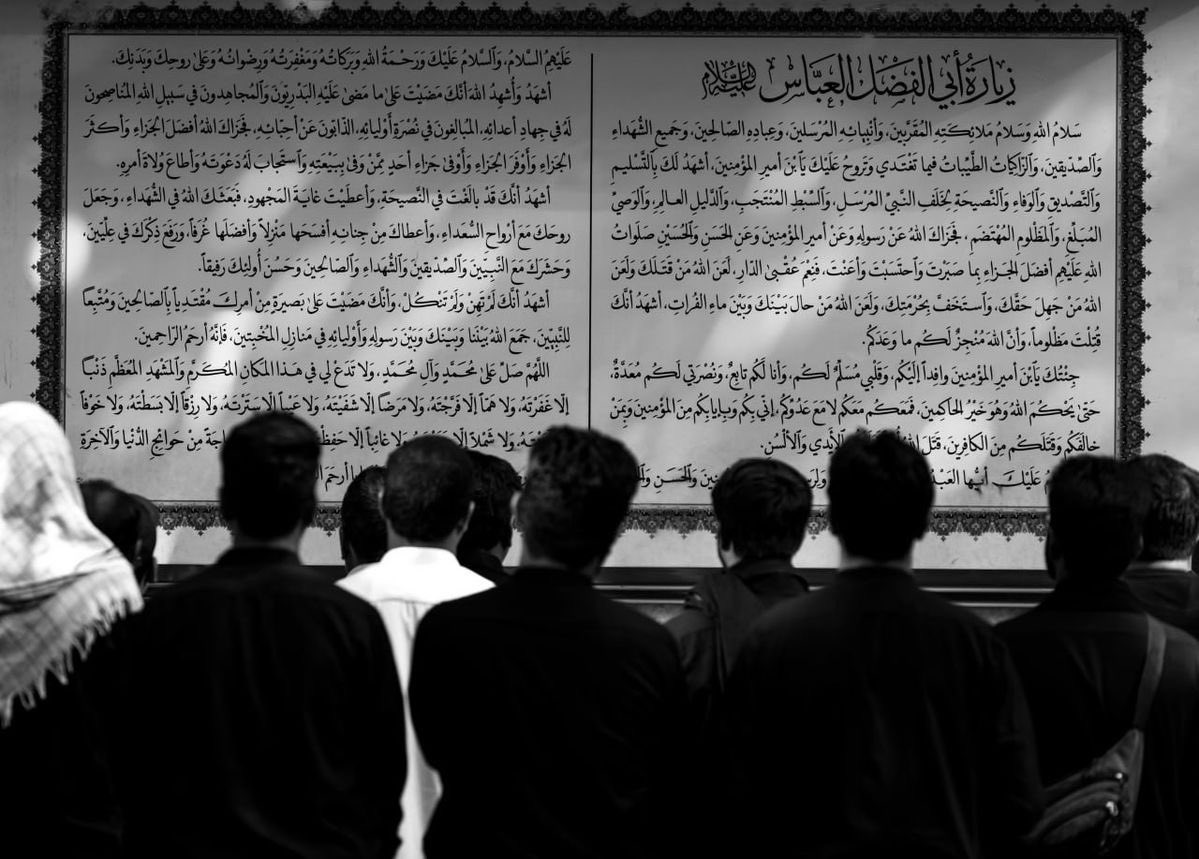 زيارة أبي الفضل العباس عليه السلام
سَلامُ اللهِ وَسَلامُ مَلائِكَتِهِ المُقَرَّبِينَ، وَأَنْبِيائِهِ المُرْسَلينَ، وَعِبادِهِ الصّالِحينَ، وَجَميعِ الشُّهَداءِ
وَالصِّدّيقينَ، وَالزّاكِياتُ الطَّيِّباتُ فيما تَغْتَدي وَتَروحُ عَلَيْكَ يَاٱبْنَ أميرِ المُؤْمِنينَ، أشهَدُ لَكَ بِالتَّسْليمِ
وَالتَّصْديقِ وَالوَفاءِ وَالنَّصيحَةِ لِخَلَفِ النَّبيِّ المُرْسَلِ، وَالسِّبْطِ المُنْتَجَبِ، وَالدَّليلِ العالِمِ، وَالوَصِيِّ
المُبَلِّغِ، وَالمَظْلومِ المُهْتَضَمِ، فَجَزاكَ اللهُ عَنْ رَسولِهِ وَعَنْ أميرِ المُؤْمِنينَ وَعَنِ الحَسَنِ وَالحُسَيْنِ صَلَواتُ
اللهِ عَلَيْهِم أفضَلَ الجَزاءِ بِما صَبَرْتَ وَاحتَسَبْتَ وَأعَنْتَ، فَنِعْمَ عُقْبى الدّارِ، لَعَنَ اللهُ مَنْ قَتَلَكَ وَلَعَنَ
اللهُ مَنْ جَهِلَ حَقَّكَ، وَاستَخَفَّ بِحُرْمَتِكَ، وَلَعَنَ اللهُ مَنْ حالَ بَيْنَكَ وَبَيْنَ ماءِ الفُراتِ، أشهَدُ أنَّكَ
قُتِلْتَ مَظْلوماً، وَأنَّ اللهَ مُنْجِزٌ لَكُم ما وَعَدَكُم.
جِئْتُكَ يَاٱبْنَ أميرِ المُؤْمِنينَ وافِداً إلَيْكُم، وَقَلْبي مُسَلِّمٌ لَكُم، وَأنا لَكُم تابِعٌ، وَنُصْرَتي لَكُم مُعَدَّةٌ،
حَتّىٰ يَحْكُمَ اللهُ وَهُوَ خَيْرُ الحاكِمينَ، فَمَعَكُم مَعَكُم لا مَعَ عَدُوِّكُم، إنّي بِكُم وَبِإيابِكُم مِنَ المُؤْمِنينَ وَبِمَنْ
خالَفَكُم وَقَتَلَكُم مِنَ الكافِرينَ، قَتَلَ اللهُ الأيْدي وَالألْسُنِ.
عَلَيْكَ أيُّها العَبْدُ وَالحَسَنِ
عَلَيْهِمُ السَّلامُ، وَالسَّلامُ عَلَيْكَ وَرَحْمَةُ اللهِ وَبَرَكاتُهُ وَمَغْفِرَتُهُ وَرِضْوانُهُ وَعَلىٰ روحِكَ وَبَدَنِكَ.
أشهَدُ وَأُشهِدُ اللهَ أنَّكَ مَضَيْتَ عَلىٰ ما مَضىٰ عَلَيْهِ البَدْرِيّونَ وَالمُجاهِدونَ في سَبيلِ اللهِ المُناصِحونَ
لَهُ في جِهادِ أعدائِهِ، المُبالِغونَ في نُصْرَةِ أوْلِيائِهِ، الذّابّونَ عَنْ أحِبّائِهِ، فَجَزاكَ اللهُ أفضَلَ الجَزاءِ وَأكثَرَ
الجَزاءِ وَأوْفَرَ الجَزاءِ وَأوْفىٰ جَزاءِ أحَدٍ مِمَّنْ وَفىٰ بِبَيْعَتِهِ وَاستَجابَ لَهُ دَعْوَتَهُ وَأطاعَ وُلاةَ أمرِهِ.
أشهَدُ أنَّكَ قَدْ بالَغْتَ في النَّصيحَةِ، وَأعطَيْتَ غايَةَ المَجْهودِ، فَبَعَثَكَ اللهُ في الشُّهَداءِ، وَجَعَلَ
روحَكَ مَعَ أرْواحِ السُّعَداءِ، وَأعطاكَ مِنْ جِنانِهِ أفسَحَها مَنْزِلاً وَأفضَلَها غُرَفاً، وَرَفَعَ ذِكْرَكَ في عِلِّيّينَ،
وَحَشَرَكَ مَعَ النَّبِيّينَ وَالصِّدّيقينَ وَالشُّهَداءِ وَالصالِحينَ وَحَسُنَ أُولٰئِكَ رَفيقاً.
أشهَدُ أنَّكَ لَمْ تَهِنْ وَلَمْ تَنْكُلْ، وَأنَّكَ مَضَيْتَ عَلىٰ بَصيرَةٍ مِنْ أمرِكَ، مُقْتَدِياً بِالصّالِحينَ وَمُتَّبِعاً
لِلنَّبِيّينَ، جَمَعَ اللهُ بَيْنَنا وَبَيْنَكَ وَبَيْنَ رَسولِهِ وَأوْلِيائِهِ في مَنازِلِ المُخْبِتينَ، فَإنَّهُ أرحَمُ الرّاحِمينَ.
اللّهُمَّ صَلِّ عَلىٰ مُحَمَّدٍ وَآلِ مُحَمَّدٍ، وَلا تَدَعْ لي في هٰذا المَكانِ المُكَرَّمِ وَالمَشْهَدِ المُعَظَّمِ ذَنْباً
إلّا غَفَرْتَهُ، وَلا هَمّاً إلّا فَرَّجْتَهُ، وَلا مَرَضاً إلّا شَفَيْتَهُ، وَلا عَيْباً إلّا سَتَرْتَهُ، وَلا رِزْقاً إلّا بَسَطْتَهُ، وَلا خَوْفاً
وَلا شَمْلاً إلّا وَلا غائِباً إلّا مِنْ حَوائِجِ الدُّنْيا وَالآخِرَةِ
يا أرحَمَ